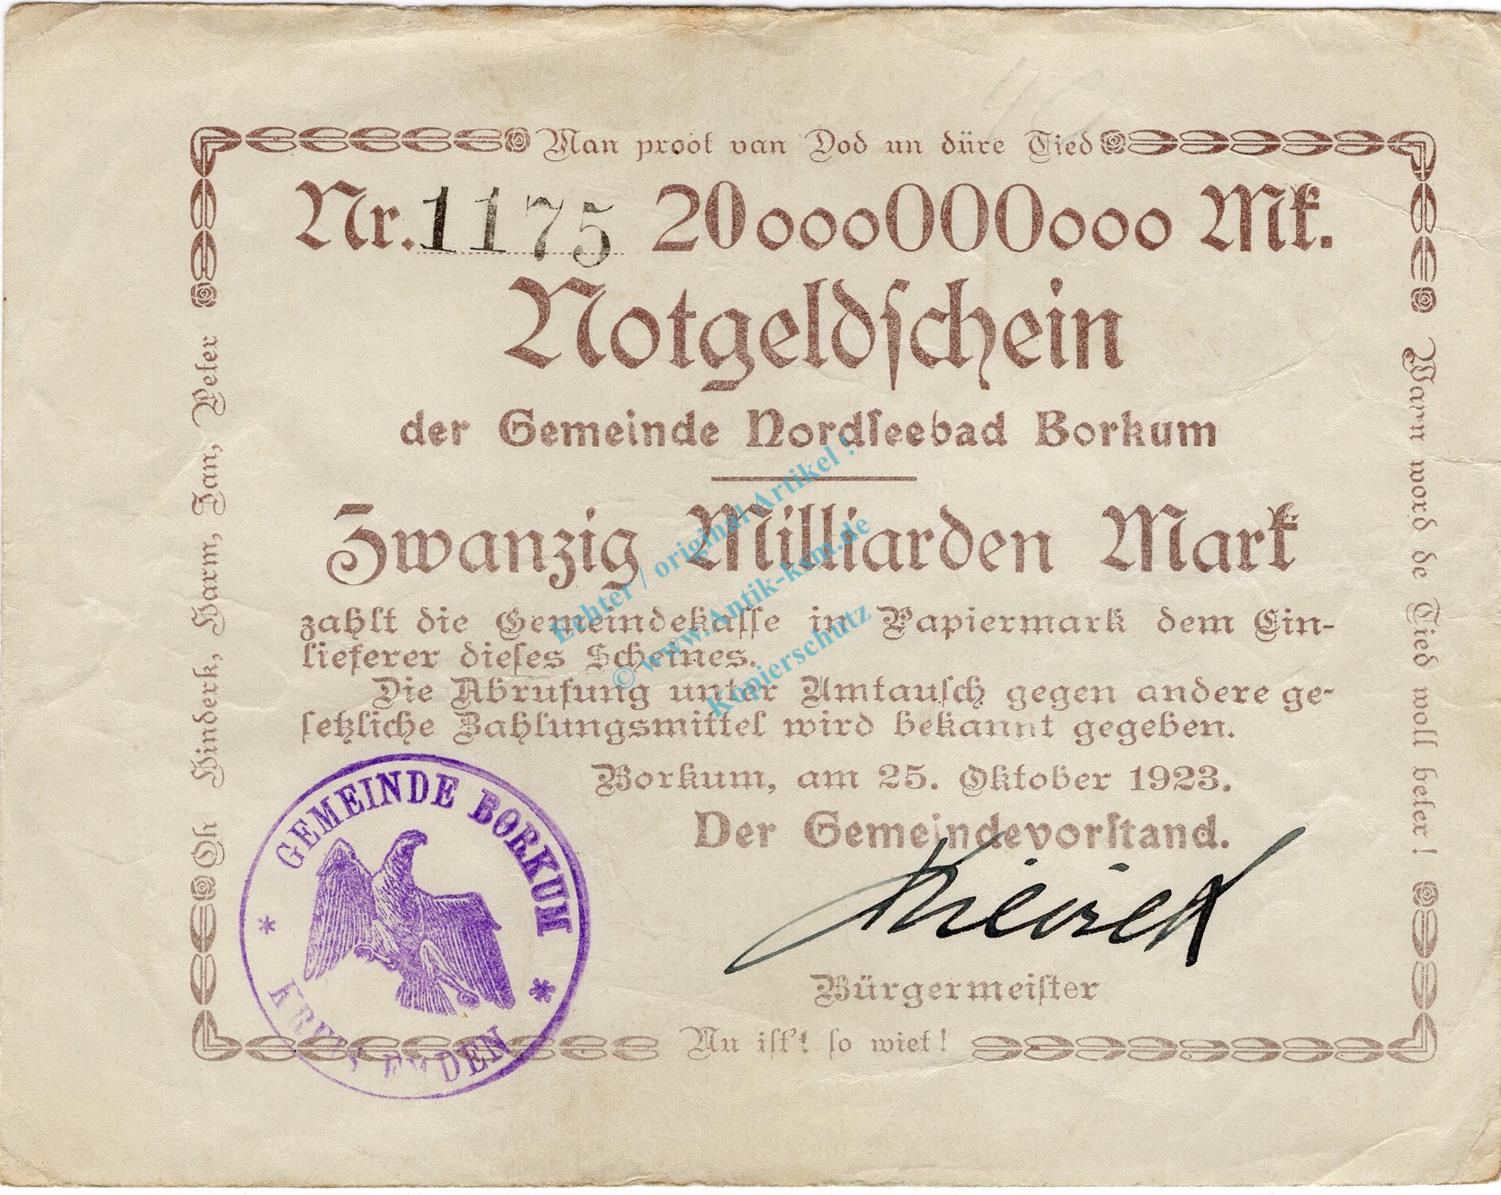 Man proot van Dod un düre Tied
Nr. 1175 20000000000 Mk.
Notgeldschein
der Gemeinde Nordseebad Borkum
Zwanzig Milliarden Mark
zahlt die Gemeindekasse in Papiermark dem Ein-
lieferer dieses Scheines.
Die Abrufung unter Umtausch gegen andere ge-
setzliche Zahlungsmittel wird bekannt gegeben.
Borkum, am 25. Oktober 1923.
Der Gemeindevorstand.
Bürgermeister
Nu ist't so wiet!
Oh Hinderk, Harm, Jan, Peter
Wann word de Tied woll beter!
GEMEINDE BORKUM
* KREIS EMDEN *
Echter / original Artikel !
© www.Antik-ksm.de
Kopierschutz